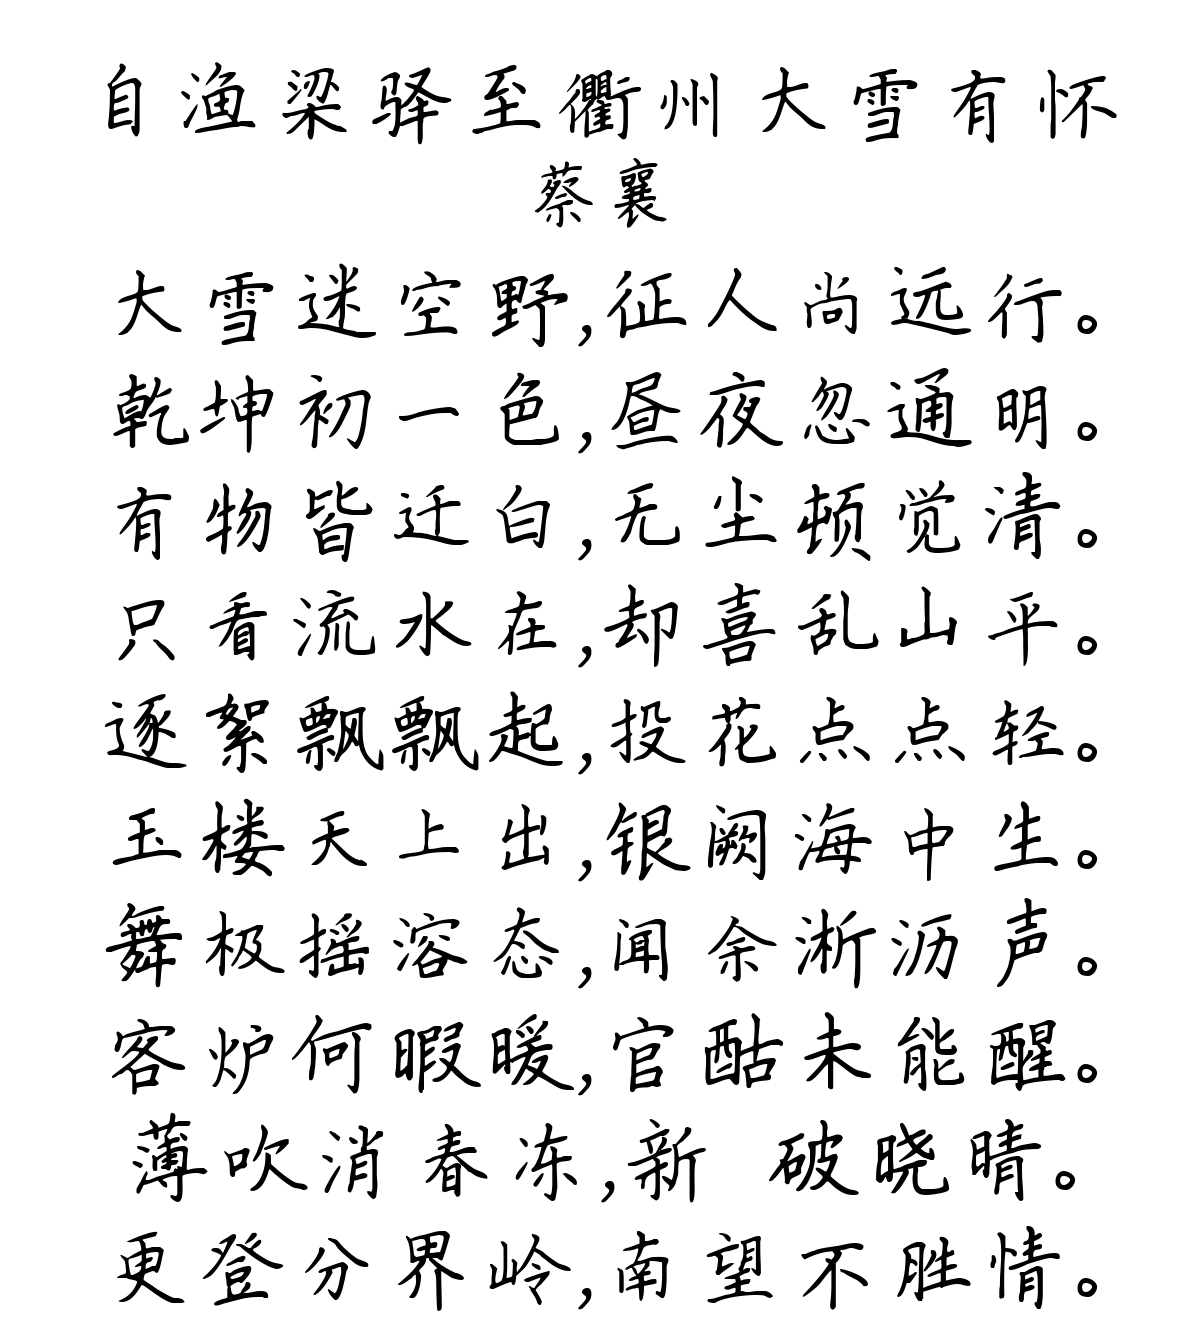 自渔梁驿至衢州大雪有怀
蔡襄
大雪迷空野,征人尚远行。
乾坤初一色,昼夜忽通明。
有物皆迁白,无尘顿觉清。
只看流水在,却喜乱山平。
逐絮飘飘起,投花点点轻。
玉楼天上出,银阙海中生。
舞极摇溶态,闻余淅沥声。
客炉何暇暖,官酤未能醒。
薄吹消春冻,新 破晓晴。
更登分界岭,南望不胜情。